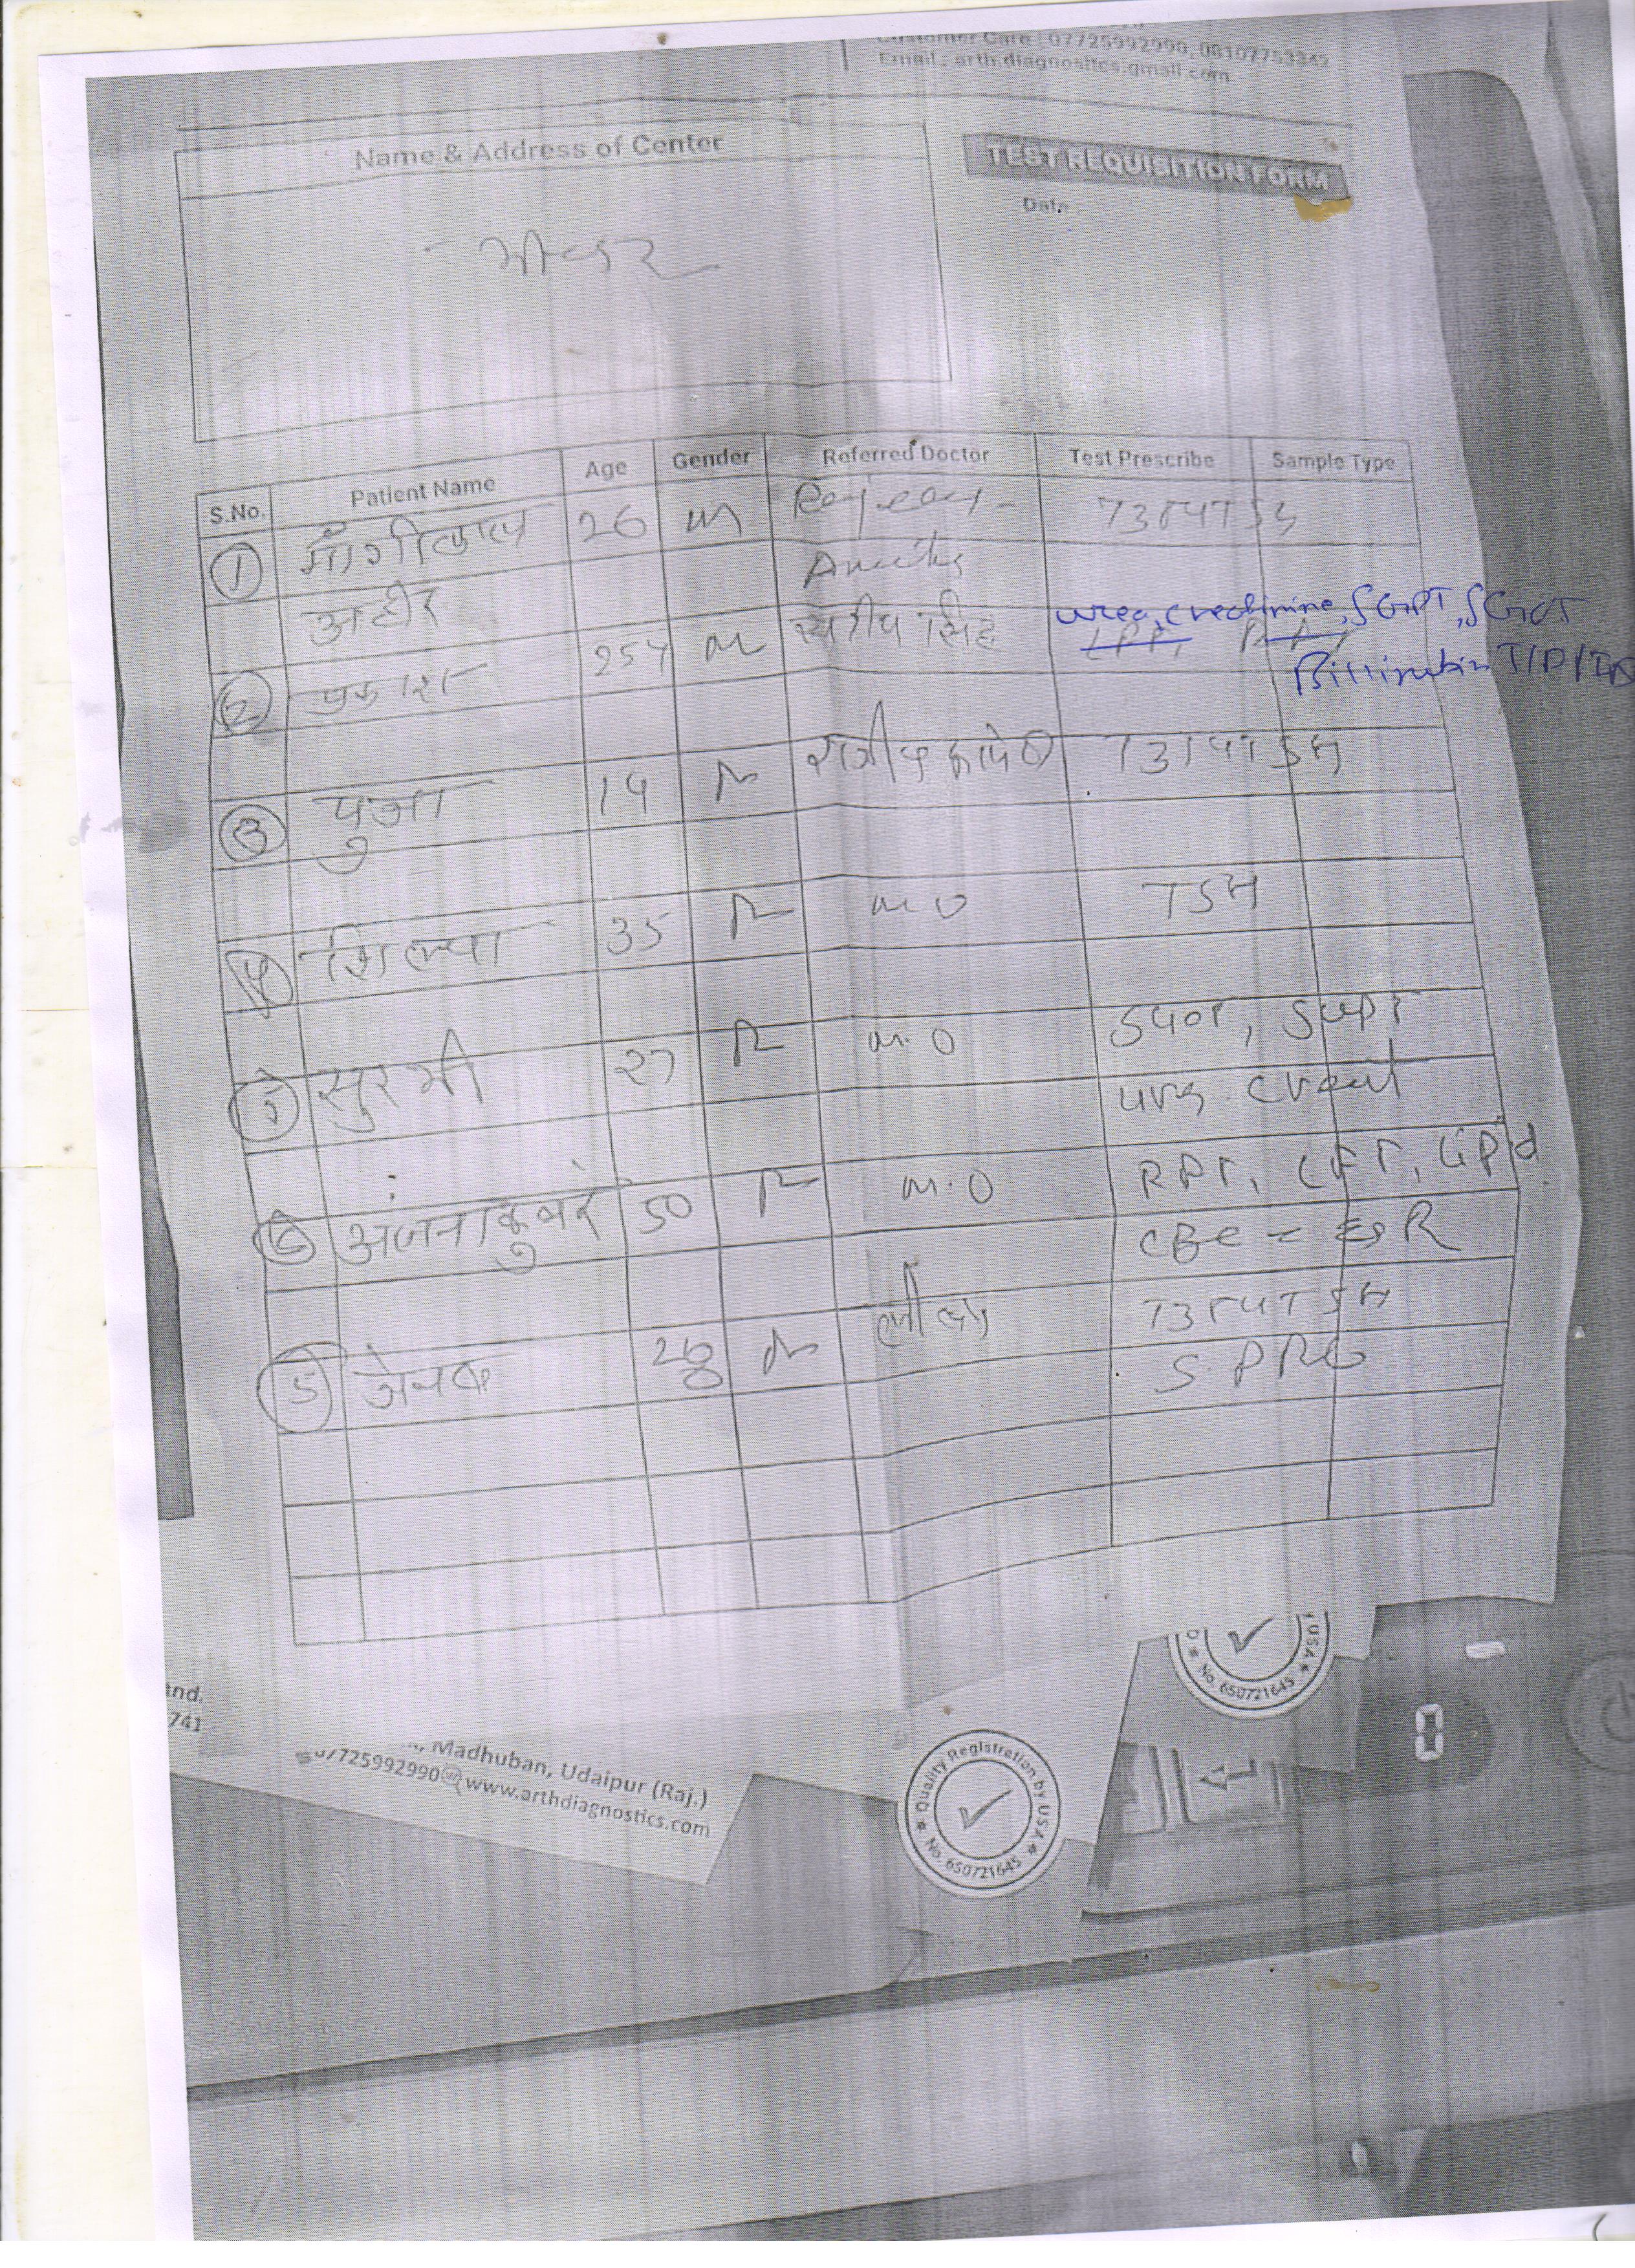 Customer Care : 07725992990, 08107753342
Email : arth.diagnositcs.gmail.com
Name & Address of Center
TEST REQUISITION FORM
Date :
S.No. Patient Name Age Gender Referred Doctor Test Prescribe Sample Type
1 माँगीलाल 26 M T3T4TSH
अहीर
2 प्रकाश 25Y M सिंह urea, creatinine, SGPT, SGOT
Billirubin T/D/ID
3 पुजा 14 F T3T4TSH
4 शिल्पा 35 F M O TSH
सुरभी 27 F M.O SGOT, SGPT
urea creat
6 अंजनाकुवर 50 F M.O RFT, LFT, Lipid
CBC - ESR
28 F T3T4TSH
S. PRG
and.
741
, Madhuban, Udaipur (Raj.)
07725992990 www.arthdiagnostics.com
Quality Registration by USA
No. 650721645
USA
No. 650721645
0